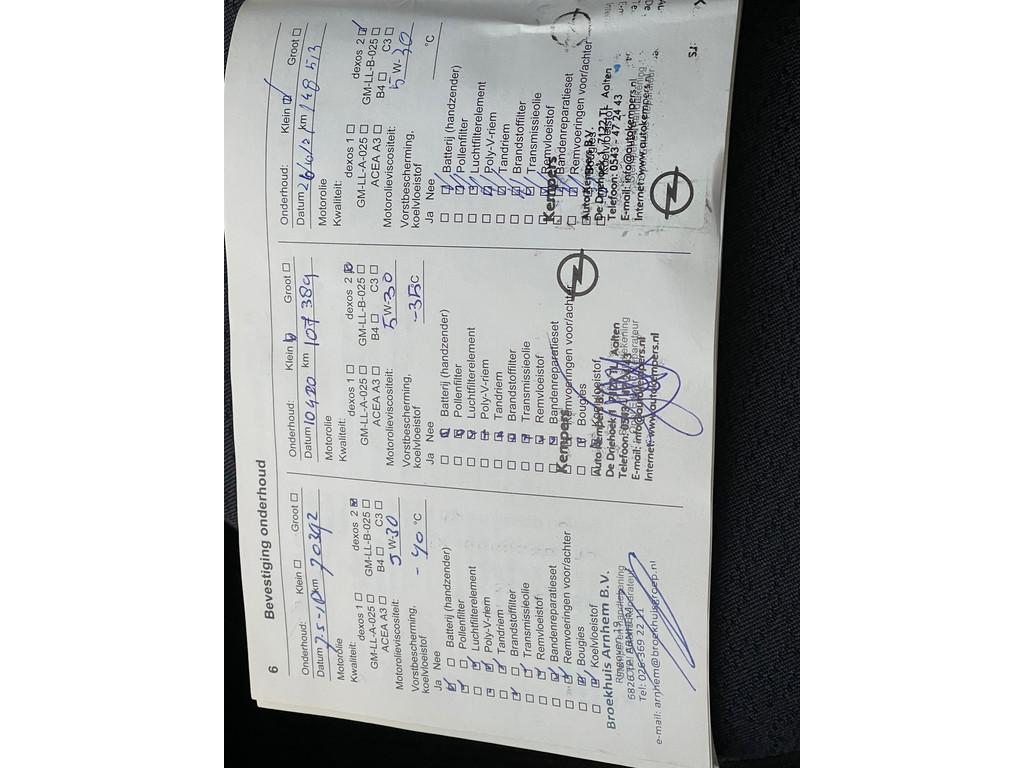 6
Bevestiging onderhoud
Onderhoud: Klein □ Groot □
Datum km 70392
Motorolie
Kwaliteit: dexos 1 □ dexos 2 ☑
GM-LL-A-025 □ GM-LL-B-025 □
ACEA A3 □ B4 □ C3 □
Motorolieviscositeit: 5 W-30
Vorstbescherming,
koelvloeistof -40 °C
Ja Nee
Batterij (handzender)
Pollenfilter
Luchtfilterelement
Poly-V-riem
Tandriem
Brandstoffilter
Transmissieolie
Remvloeistof
Bandenreparatieset
Remvoeringen voor/achter
Bougies
Koelvloeistof
Broekhuis Arnhem B.V.
Tel: 026 369 22 11
e-mail: arnhem@broekhuisgroep.nl
Onderhoud: Klein ☑ Groot □
Datum 10420 km 107389
Motorolie
Kwaliteit: dexos 1 □ dexos 2 ☑
GM-LL-A-025 □ GM-LL-B-025 □
ACEA A3 □ B4 □ C3 □
Motorolieviscositeit: 5 W-30
Vorstbescherming,
koelvloeistof -35 °C
Ja Nee
Batterij (handzender)
Pollenfilter
Luchtfilterelement
Poly-V-riem
Tandriem
Brandstoffilter
Transmissieolie
Remvloeistof
Bandenreparatieset
Remvoeringen voor/achter
Bougies
Koelvloeistof
Kempers
Auto Kempers B.V.
De Driehoek 1 Aalten
Telefoon: 0543
E-mail: info@autokempers.nl
Internet: www.autokempers.nl
Onderhoud: Klein ☑ Groot □
Datum km 148513
Motorolie
Kwaliteit: dexos 1 □ dexos 2 ☑
GM-LL-A-025 □ GM-LL-B-025 □
ACEA A3 □ B4 □ C3 □
Motorolieviscositeit: 5 W-30
Vorstbescherming,
koelvloeistof °C
Ja Nee
Batterij (handzender)
Pollenfilter
Luchtfilterelement
Poly-V-riem
Tandriem
Brandstoffilter
Transmissieolie
Remvloeistof
Bandenreparatieset
Remvoeringen voor/achter
Koelvloeistof
Kempers
Auto Kempers B.V.
De Driehoek 1, 7122 TL Aalten
Telefoon: 0543 - 47 24 43
E-mail: info@autokempers.nl
Internet: www.autokempers.nl